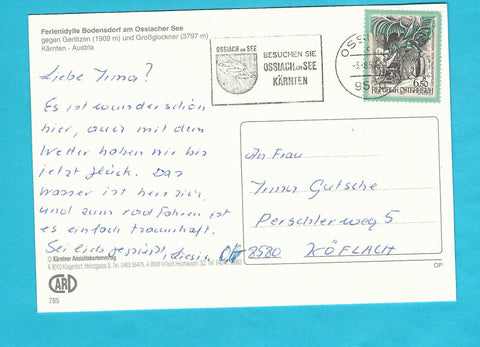 Ferienidylle Bodensdorf am Ossiacher See
gegen Gerlitzen (1909 m) und Großglockner (3797 m)
Kärnten - Austria
OSSIACH AM SEE
BESUCHEN SIE
OSSIACH AM SEE
KÄRNTEN
OSSI
-3.-8.9
95
650
REPUBLIK ÖSTERREICH
Liebe Irma?
Es ist wunderschön
hier, auch mit dem
Wetter haben wir bis
jetzt glück. Das
Wasser ist herrlich,
und zum radfahren ist
es einfach traumhaft.
Sei lieb gegrüßt,
An Frau
Irma Gutsche
Perschlerweg 5
8580 KÖFLACH
© Kärntner Ansichtskartenverlag
A 9010 Klagenfurt,
CARD
785
OP